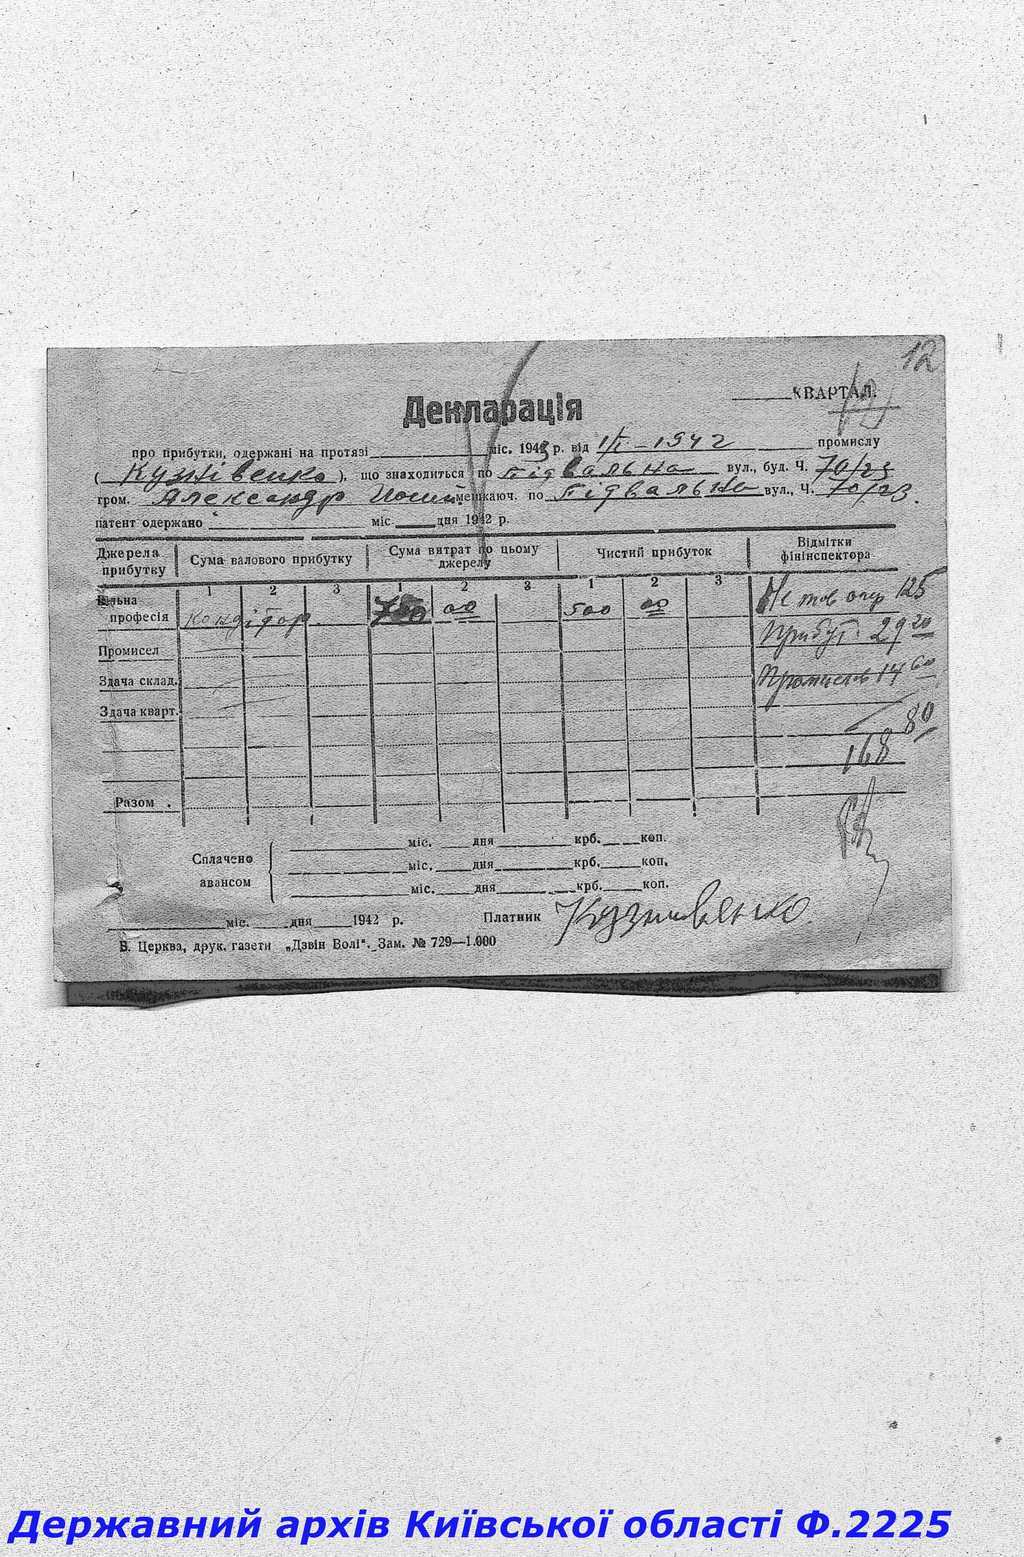 12
Декларація
КВАРТАЛ.
про прибутки, одержані на протязі міс. 1943 р. від 1/I - 1942 промислу
( ), що знаходиться по Підвальна вул., буд. Ч. 70/23
гром. Александр мешкаюч. по Підвальна вул., Ч. 70/23.
патент одержано міс. дня 1942 р.
Джерела прибутку Сума валового прибутку Сума витрат по цьому джерелу Чистий прибуток Відмітки фінінспектора
1 2 3 1 2 3 1 2 3
Вільна професія кондітор. 00 500 00 125
Прибут. 29 20
Промисел
Здача склад. 14 60
Здача кварт.
168 80
Разом .
Сплачено авансом
міс. дня крб. коп.
міс. дня крб. коп.
міс. дня крб. коп.
міс. дня 1942 р. Платник
Б. Церква, друк. газети „Дзвін Волі“. Зам. № 729—1.000
Державний архів Київської області Ф.2225